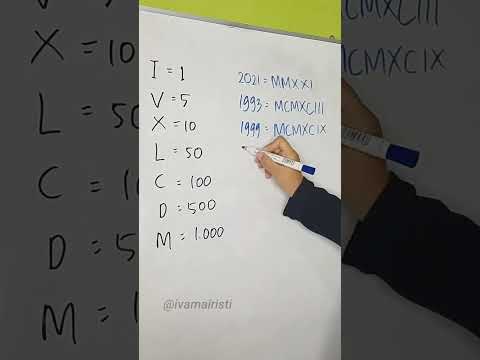 I = 1
V = 5
X = 10
L = 50
C = 100
D = 500
M = 1.000
2021 = MMXXI
1993 = MCMXCIII
1999 = MCMXCIX
@ivamairisti